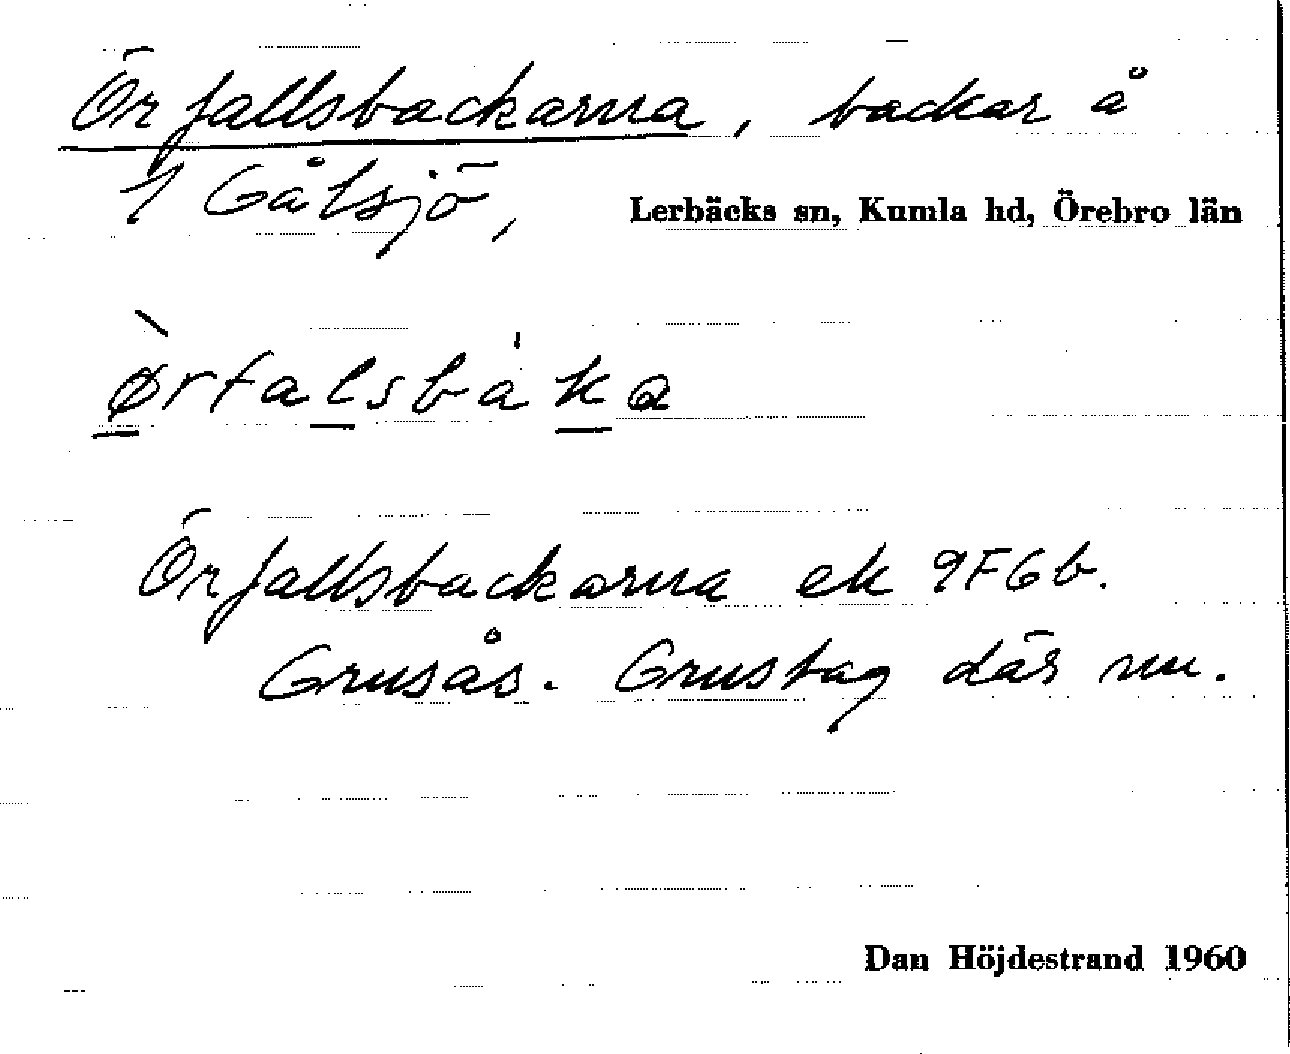 Örfallsbackarna, backar å
1 Gålsjö, Lerbäcks sn, Kumla hd, Örebro län
ø̀rfalsbáka
Örfallsbackarna ek 9F6b.
Grusås. Grustag där nu.
Dan Höjdestrand 1960